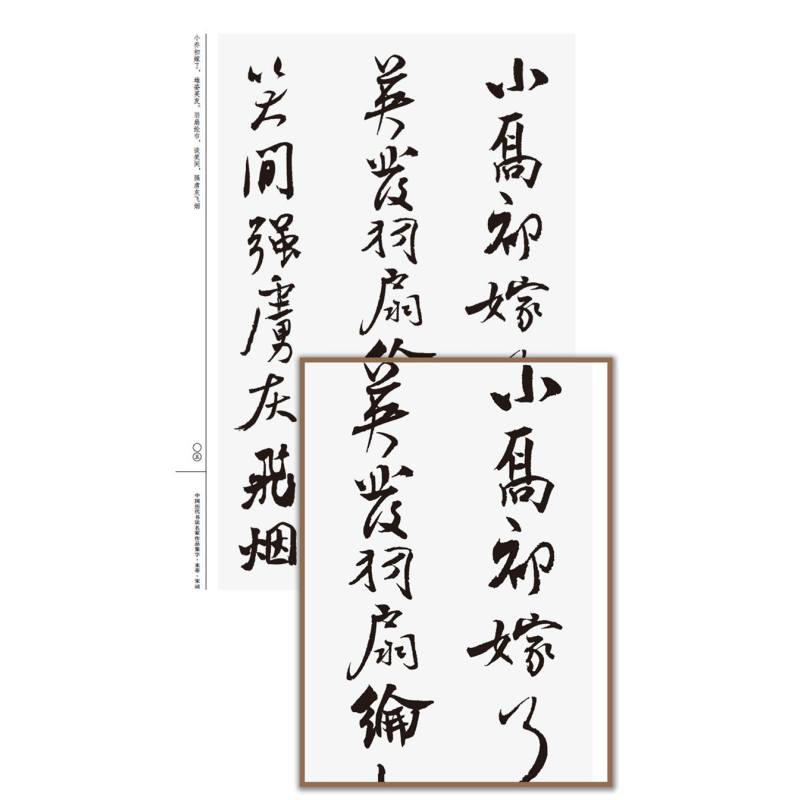 小喬初嫁
英發羽扇綸
笑間强虜灰飛烟
小乔初嫁了，雄姿英发。羽扇纶巾，谈笑间，强虏灰飞烟
〇五
中国历代书法名家作品集字·米芾·宋词
小喬初嫁了
英發羽扇綸